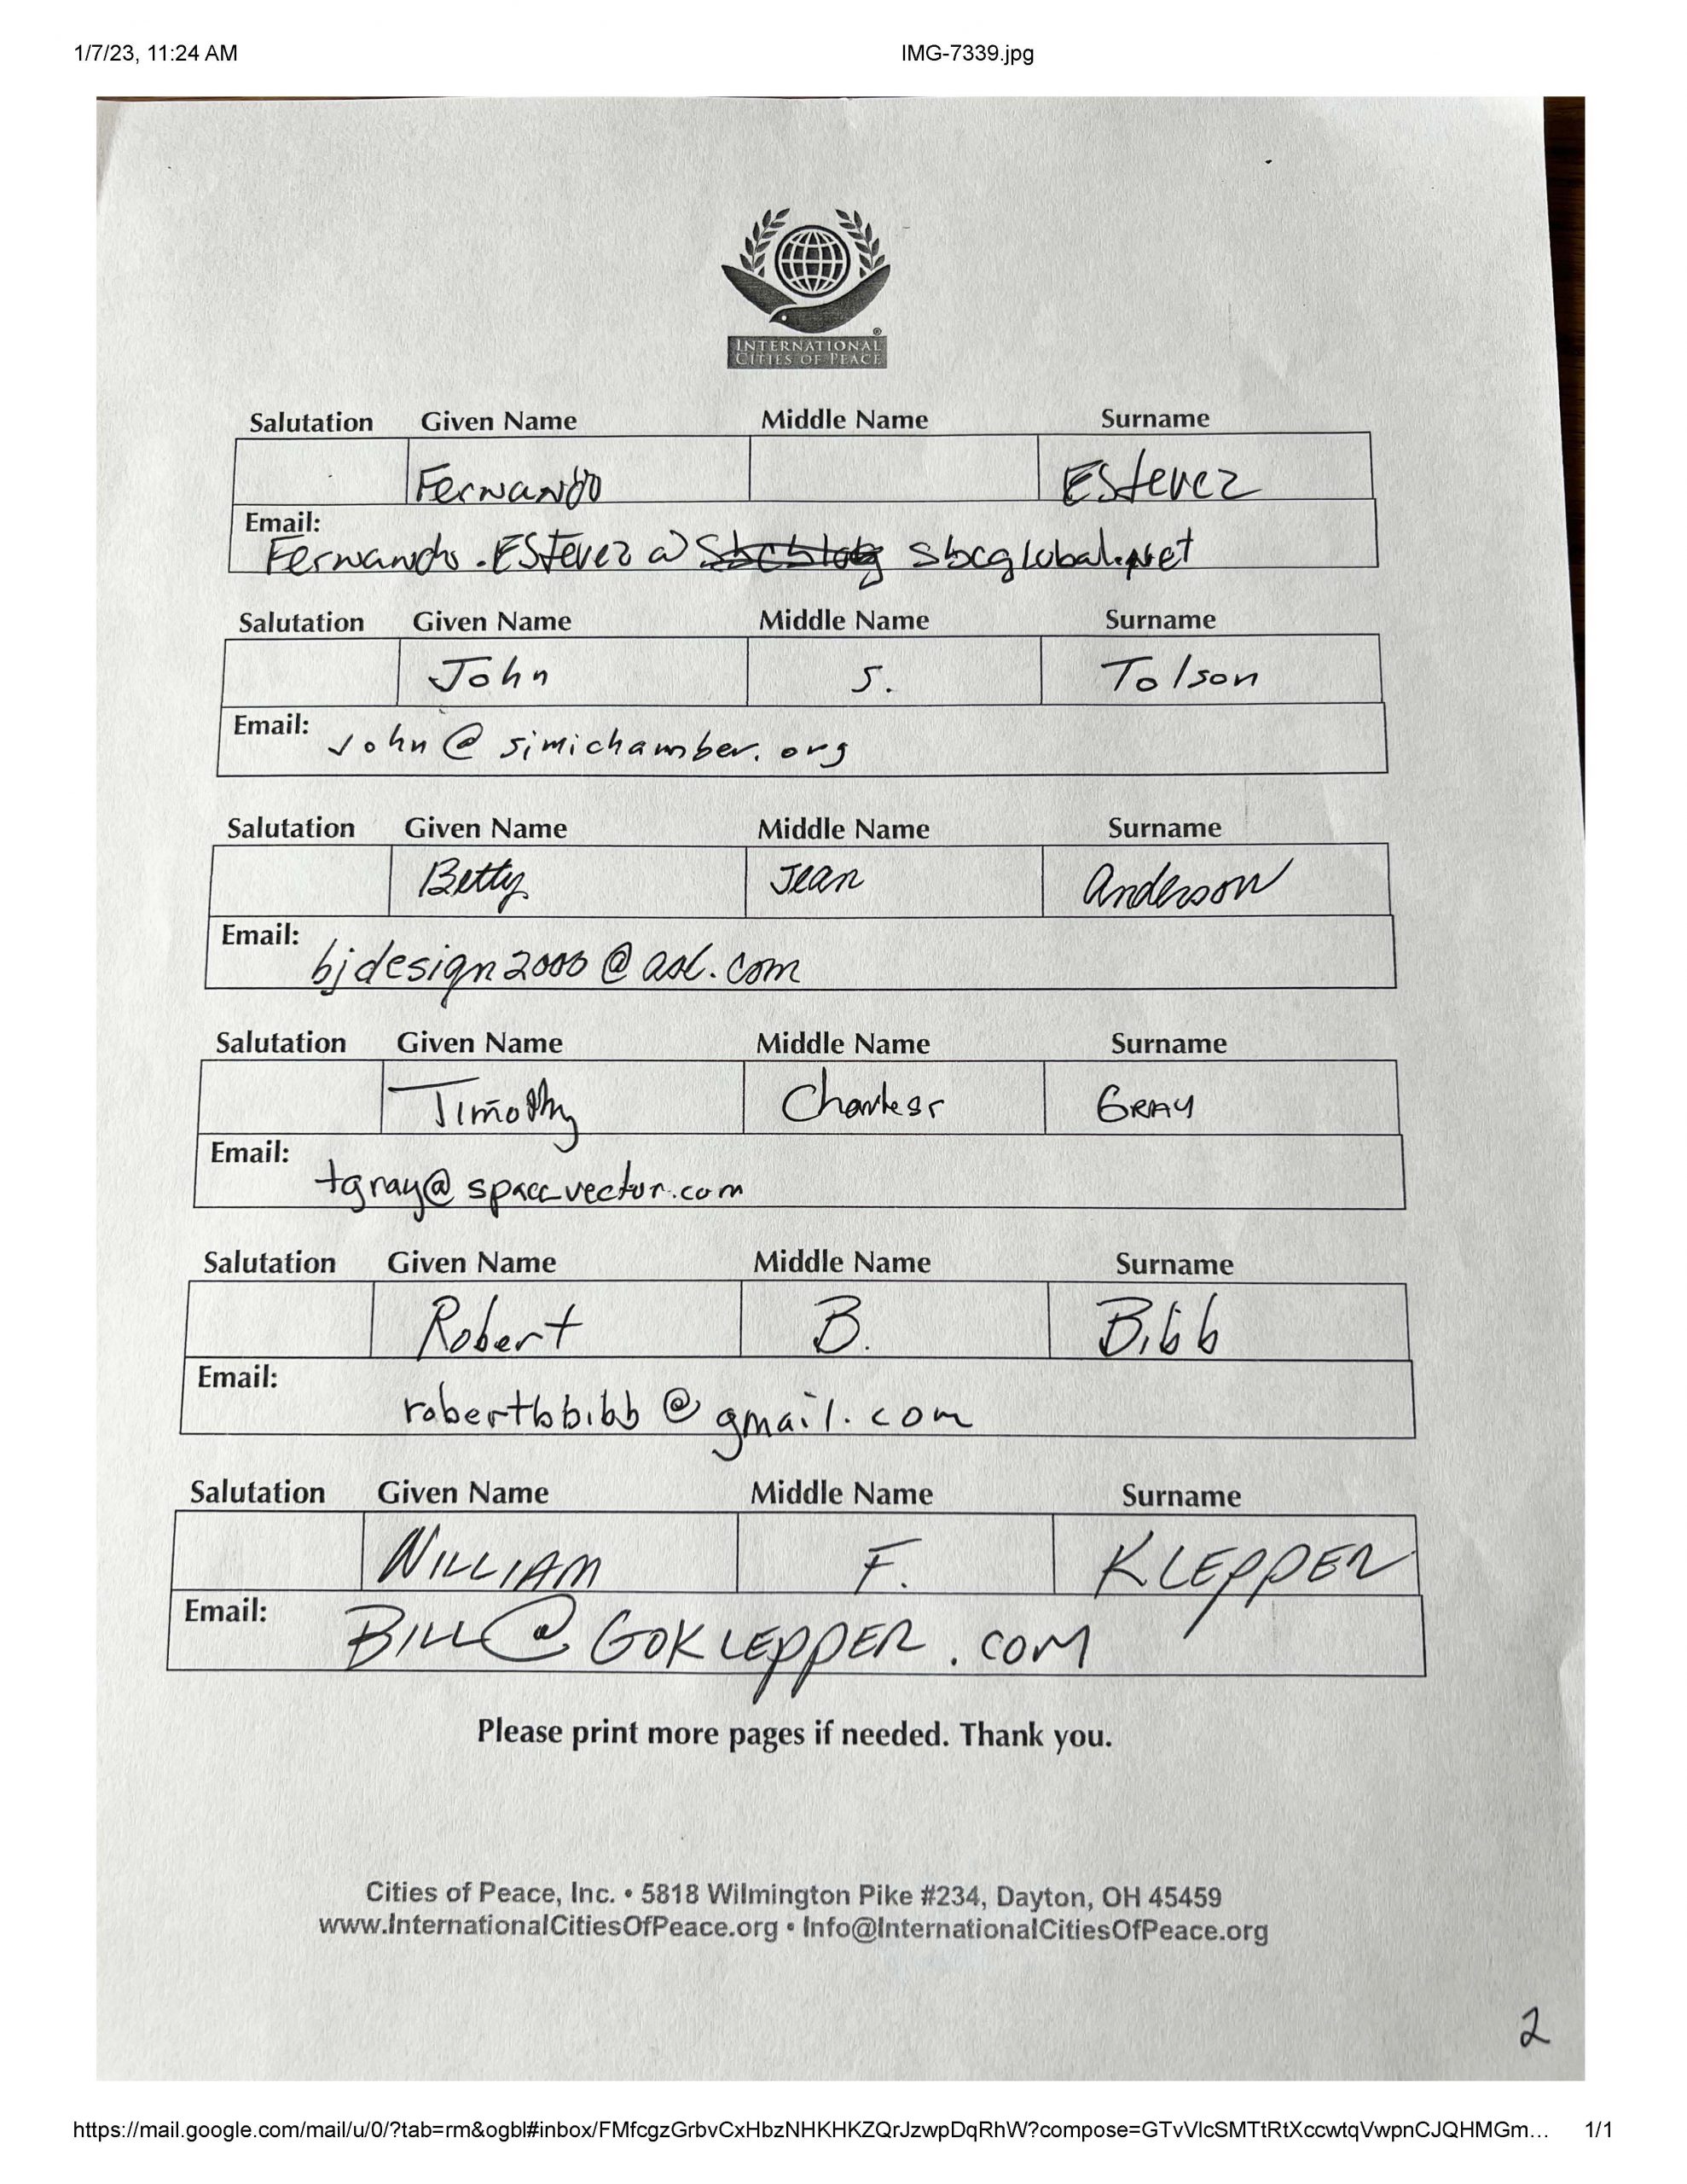 1/7/23, 11:24 AM IMG-7339.jpg
INTERNATIONAL
CITIES OF PEACE
®
Salutation Given Name Middle Name Surname
Fernando Estevez
Email:
Fernando.Estevez@ sbcglobal.net
Salutation Given Name Middle Name Surname
John S. Tolson
Email: John@simichamber.org
Salutation Given Name Middle Name Surname
Betty Jean Anderson
Email:
bjdesign2000@aol.com
Salutation Given Name Middle Name Surname
Timothy Charles GRAY
Email:
tgray@spacevector.com
Salutation Given Name Middle Name Surname
Robert B. Bibb
Email:
robertbbibb@gmail.com
Salutation Given Name Middle Name Surname
WILLIAM F. KLEPPER
Email: BILL@GOKLEPPER.COM
Please print more pages if needed. Thank you.
Cities of Peace, Inc. • 5818 Wilmington Pike #234, Dayton, OH 45459
www.InternationalCitiesOfPeace.org • Info@InternationalCitiesOfPeace.org
2
https://mail.google.com/mail/u/0/?tab=rm&ogbl#inbox/FMfcgzGrbvCxHbzNHKHKZQrJzwpDqRhW?compose=GTvVlcSMTtRtXccwtqVwpnCJQHMGm… 1/1